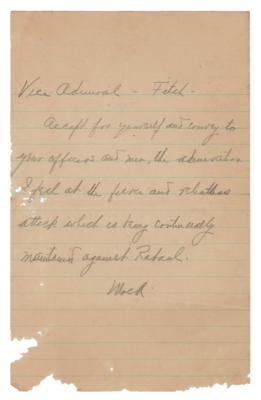 Vice Admiral - Fitch -
Accept for yourself and convey to
your officers and men, the admiration
I feel at the fierce and relentless
attack which is being continuously
maintained against Rabaul.